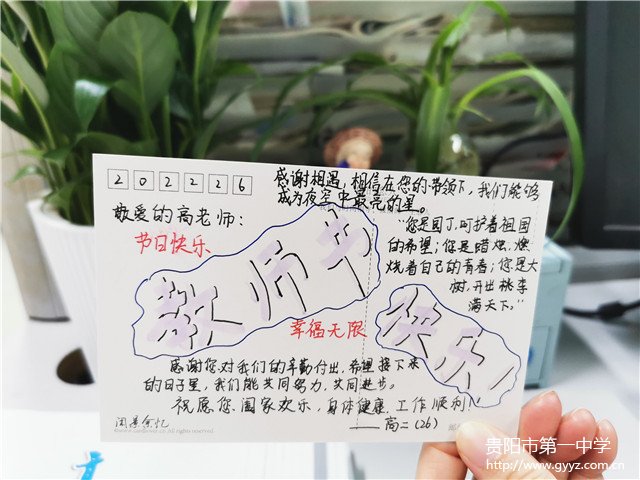 202226
感谢相遇，相信在您的带领下，我们能够
成为夜空中最亮的星。
敬爱的高老师：
节日快乐
"您是园丁，呵护着祖国
的希望；您是蜡烛，燃
烧着自己的青春；您是大
树，开出桃李
满天下。"
教师节
幸福无限
快乐！
感谢您对我们的辛勤付出，希望接下来
的日子里，我们能共同努力，共同进步。
祝愿您阖家欢乐，身体健康，工作顺利！
——高二(26)
贵阳市第一中学
http://www.gyyz.com.cn